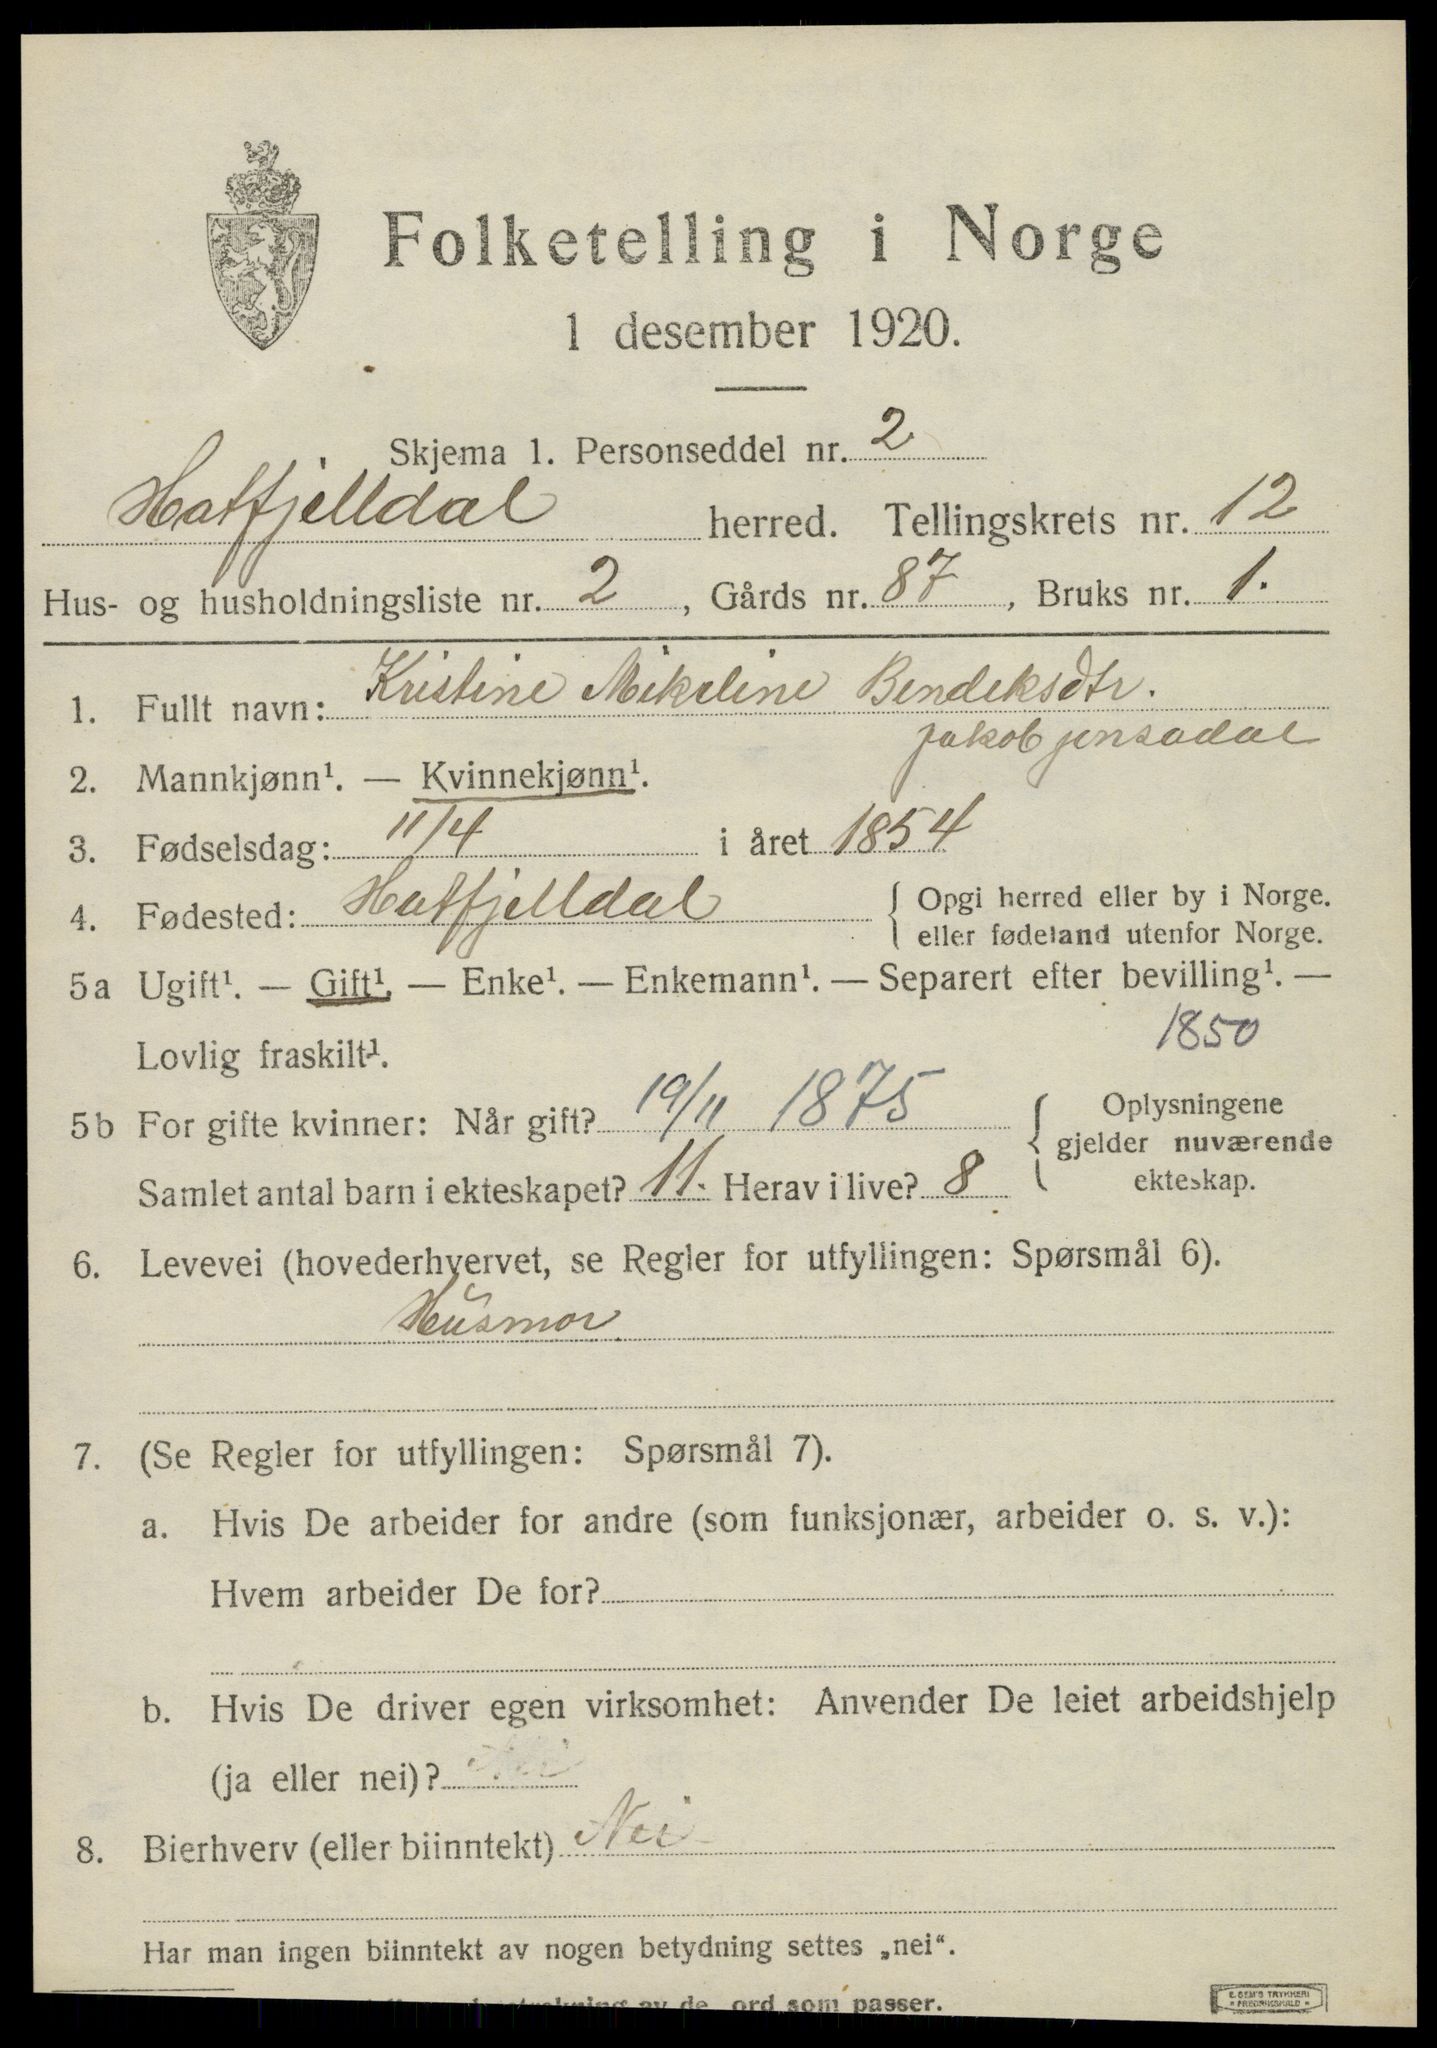 Folketelling i Norge
1 desember 1920.
Skjema 1. Personseddel nr. 2
Hatfjelldal herred. Tellingskrets nr. 12
Hus- og husholdningsliste nr. 2, Gårds nr. 87, Bruks nr. 1.
1. Fullt navn: Kristine Mikeline Bendeksdtr.
Jakobjensadal
2. Mannkjønn¹. — Kvinnekjønn¹.
3. Fødselsdag: 11/4 i året 1854
4. Fødested: Hatfjelldal { Opgi herred eller by i Norge.
eller fødeland utenfor Norge.
5a Ugift¹. — Gift¹. — Enke¹. — Enkemann¹. — Separert efter bevilling¹. —
Lovlig fraskilt¹.
1850
5b For gifte kvinner: Når gift? 19/11 1875
Samlet antal barn i ekteskapet? 11. Herav i live? 8
{ Oplysningene
gjelder nuværende
ekteskap.
6. Levevei (hovederhvervet, se Regler for utfyllingen: Spørsmål 6).
Husmor
7. (Se Regler for utfyllingen: Spørsmål 7).
a. Hvis De arbeider for andre (som funksjonær, arbeider o. s. v.):
Hvem arbeider De for?
b. Hvis De driver egen virksomhet: Anvender De leiet arbeidshjelp
(ja eller nei)? Nei
8. Bierhverv (eller biinntekt) Nei
Har man ingen biinntekt av nogen betydning settes „nei“.
av de ord som passer.
E. SEM'S TRYKKERI
FREDRIKSHALD